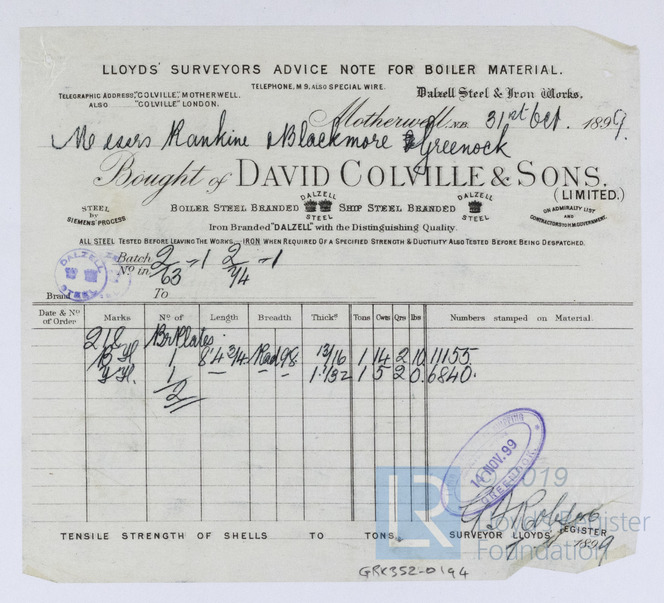 LLOYDS' SURVEYORS ADVICE NOTE FOR BOILER MATERIAL.
TELEPHONE, M 9, ALSO SPECIAL WIRE.
TELEGRAPHIC ADDRESS, "COLVILLE", MOTHERWELL.
ALSO "COLVILLE" LONDON.
Dalzell Steel & Iron Works.
Motherwell. N.B. 31st Oct. 1899.
Messrs Rankine & Blackmore Greenock
Bought of DAVID COLVILLE & SONS.
(LIMITED.)
STEEL by SIEMENS' PROCESS
BOILER STEEL BRANDED DALZELL STEEL SHIP STEEL BRANDED DALZELL STEEL
ON ADMIRALTY LIST AND CONTRACTORS TO H.M. GOVERNMENT.
Iron Branded "DALZELL" with the Distinguishing Quality.
ALL STEEL TESTED BEFORE LEAVING THE WORKS. IRON WHEN REQUIRED OF A SPECIFIED STRENGTH & DUCTILITY ALSO TESTED BEFORE BEING DESPATCHED.
DALZELL STEEL
Batch No. in 2/63 - 1 2/74 - 1
Brand To
Date & No of Order Marks No of Length Breadth Thickss Tons Cwts Qrs lbs Numbers stamped on Material.
218 Br Plates
B H 1 8' 4 3/4 Rad 98 13/16 1 14 2 10 11155
1 1 1/32 1 5 2 0 6840.
2
14 NOV. 99
GREENOCK
2019
Lloyd's Register
Foundation
LR
TENSILE STRENGTH OF SHELLS TO TONS.
SURVEYOR LLOYDS' REGISTER
1899
GRK352-0194